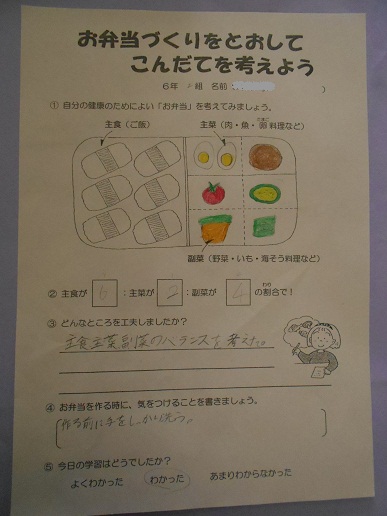 お弁当づくりをとおして
こんだてを考えよう
６年 組 名前 )
① 自分の健康のためによい「お弁当」を考えてみましょう。
主食（ご飯） 主菜（肉・魚・卵料理など）
副菜（野菜・いも・海そう料理など）
② 主食が 6 ：主菜が 2 ：副菜が 4 の割合で！
③ どんなところを工夫しましたか？
主食主菜副菜のバランスを考えた。
④ お弁当を作る時に、気をつけることを書きましょう。
作る前に手をしっかり洗う。
⑤ 今日の学習はどうでしたか？
よくわかった わかった あまりわからなかった